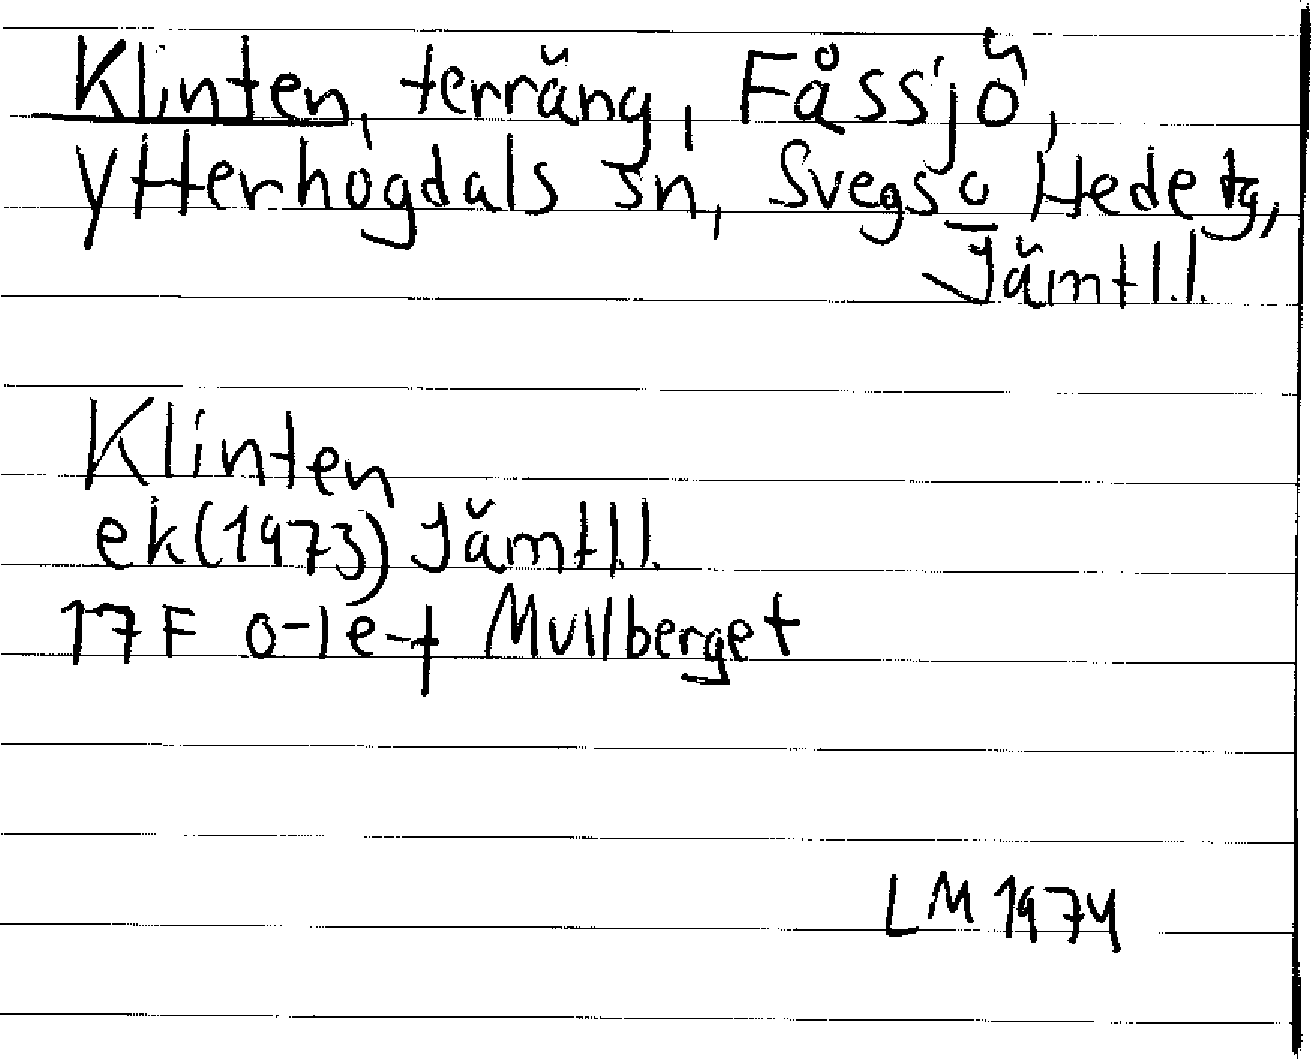 Klinten, terräng, Fåssjö,
Ytterhogdals sn, Svegs o Hede tg,
Jämtl.l.
Klinten
ek(1973) Jämtl.l.
17F 0-1 e-f Mullberget
LM 1974